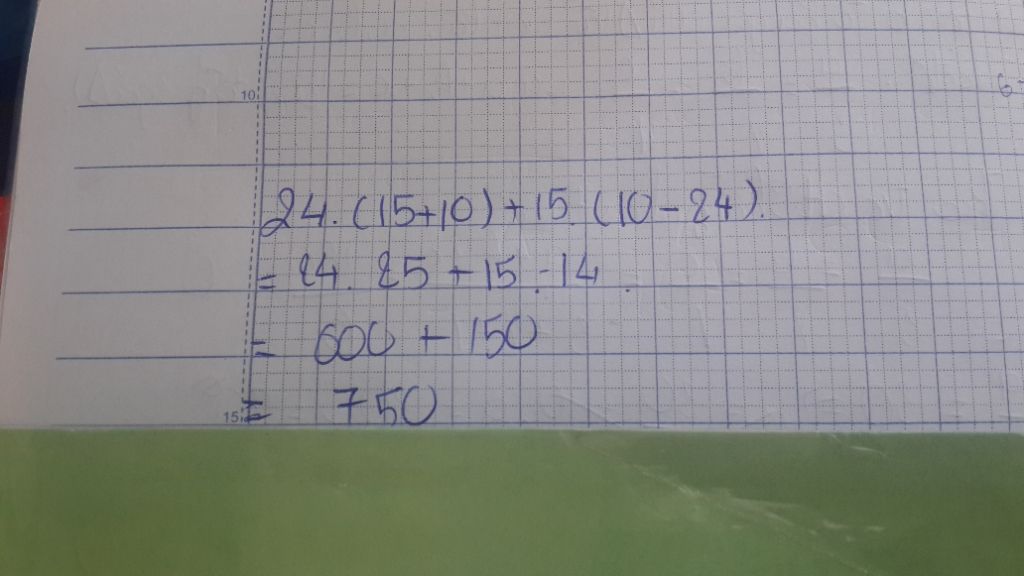 10
6-
24. (15+10) + 15. (10-24).
= 24. 25 + 15. -14.
= 600 + 150
15
= 750